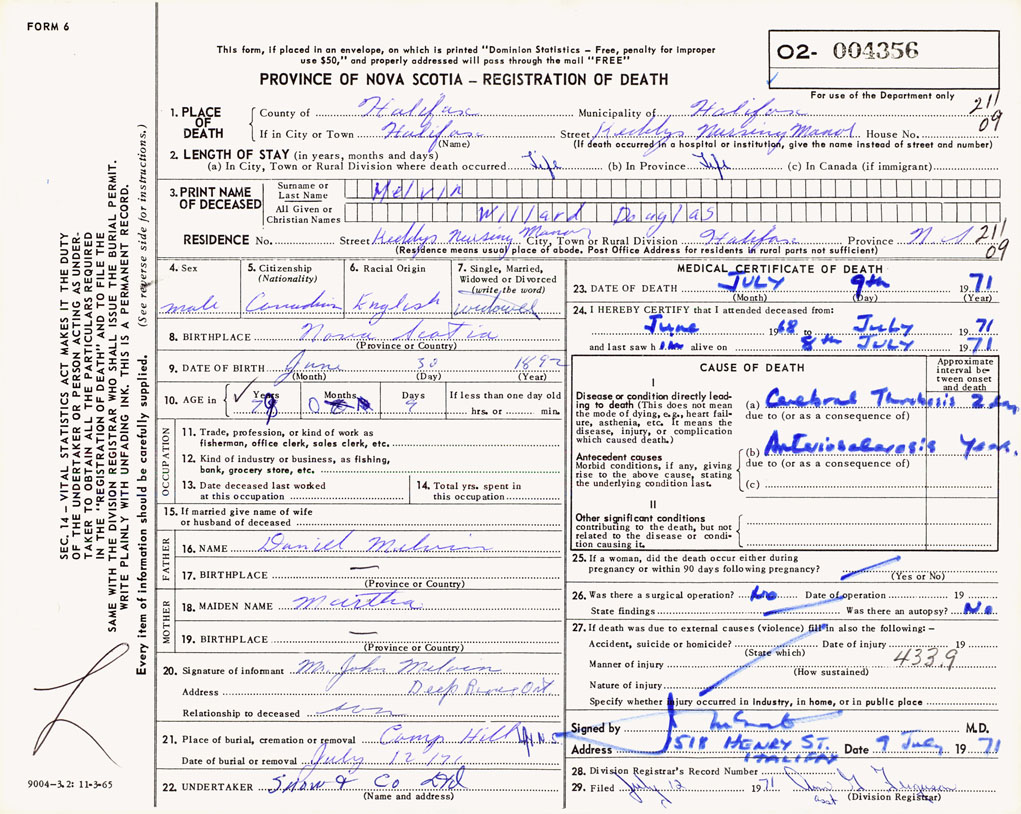 FORM 6
This form, if placed in an envelope, on which is printed "Dominion Statistics – Free, penalty for improper
use $50," and properly addressed will pass through the mail "FREE"
O2- 004356
PROVINCE OF NOVA SCOTIA – REGISTRATION OF DEATH
For use of the Department only
211
09
1. PLACE OF DEATH
County of Halifax Municipality of Halifax
If in City or Town Halifax Street Keddys Nursing Manor House No.
(Name) (If death occurred in a hospital or institution, give the name instead of street and number)
2. LENGTH OF STAY (in years, months and days)
(a) In City, Town or Rural Division where death occurred Life (b) In Province Life (c) In Canada (if immigrant)
3. PRINT NAME OF DECEASED
Surname or Last Name Melvin
All Given or Christian Names Willard Douglas
211
09
RESIDENCE No. Street Keddys Nursing Manor City, Town or Rural Division Halifax Province N S
(Residence means usual place of abode. Post Office Address for residents in rural parts not sufficient)
4. Sex
male
5. Citizenship (Nationality)
Canadian
6. Racial Origin
English
7. Single, Married, Widowed or Divorced (write the word)
widowed
8. BIRTHPLACE Nova Scotia
(Province or Country)
9. DATE OF BIRTH June 30 1892
(Month) (Day) (Year)
10. AGE in Years Months Days If less than one day old
79 0 9 hrs. or min.
OCCUPATION
11. Trade, profession, or kind of work as
fisherman, office clerk, sales clerk, etc.
12. Kind of industry or business, as fishing,
bank, grocery store, etc.
13. Date deceased last worked
at this occupation
14. Total yrs. spent in
this occupation
15. If married give name of wife
or husband of deceased
FATHER
16. NAME Daniel Melvin
17. BIRTHPLACE —
(Province or Country)
MOTHER
18. MAIDEN NAME Martha
19. BIRTHPLACE —
(Province or Country)
20. Signature of informant Mr. John Melvin
Address Deep River Ont
Relationship to deceased son
21. Place of burial, cremation or removal Camp Hill
Date of burial or removal July 12/71
22. UNDERTAKER Snow & Co Ltd
(Name and address)
MEDICAL CERTIFICATE OF DEATH
23. DATE OF DEATH JULY 9th 1971
(Month) (Day) (Year)
24. I HEREBY CERTIFY that I attended deceased from:
June 1968 to July 1971
and last saw him alive on 8th JULY 1971
CAUSE OF DEATH
Approximate interval between onset and death
I
Disease or condition directly leading to death (This does not mean
the mode of dying, e.g., heart failure, asthenia, etc. It means the
disease, injury, or complication
which caused death.)
(a) Cerebral Thrombosis 2 days
due to (or as a consequence of)
Antecedent causes
Morbid conditions, if any, giving
rise to the above cause, stating
the underlying condition last.
(b) Arteriosclerosis Years.
due to (or as a consequence of)
(c)
II
Other significant conditions
contributing to the death, but not
related to the disease or condition causing it.
25. If a woman, did the death occur either during
pregnancy or within 90 days following pregnancy?
(Yes or No)
26. Was there a surgical operation? No Date of operation 19
State findings Was there an autopsy? No
27. If death was due to external causes (violence) fill in also the following: –
Accident, suicide or homicide? Date of injury 19
(State which)
Manner of injury 433.9
(How sustained)
Nature of injury
Specify whether injury occurred in Industry, in home, or in public place
Signed by M.D.
Address 1518 HENRY ST. Date 9 July 1971
HALIFAX
28. Division Registrar's Record Number
29. Filed July 12 1971 Ferguson
asst (Division Registrar)
SEC. 14 – VITAL STATISTICS ACT MAKES IT THE DUTY
OF THE UNDERTAKER OR PERSON ACTING AS UNDER-
TAKER TO OBTAIN ALL THE PARTICULARS REQUIRED
IN THE "REGISTRATION OF DEATH" AND TO FILE THE
SAME WITH THE DIVISION REGISTRAR WHO SHALL ISSUE THE BURIAL PERMIT.
WRITE PLAINLY WITH UNFADING INK. THIS IS A PERMANENT RECORD.
Every item of information should be carefully supplied. (See reverse side for instructions.)
9004-3.2: 11-3-65